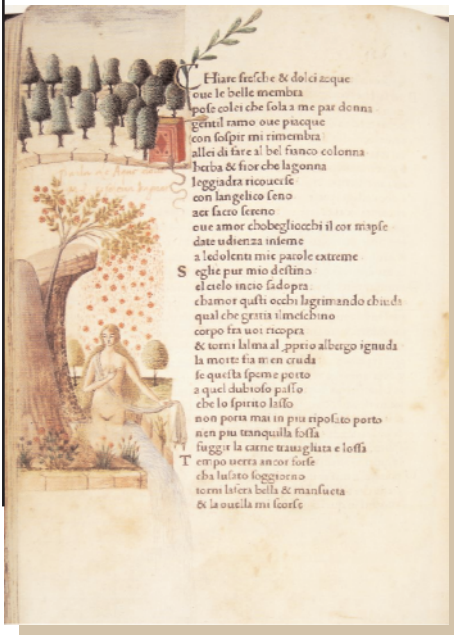 CHiare fresche & dolci acque
oue le belle membra
pose colei che sola a me par donna
gentil ramo oue piacque
con sospir mi rimembra
allei di fare al bel fianco colonna
herba & fior che lagonna
leggiadra ricouerse
con langelico seno
aer sacro sereno
oue amor chobegliocchi il cor maperse
date udienza insieme
a ledolenti mie parole extreme
Seglie pur mio destino
el cielo incio sadopra
chamor questi occhi lagrimando chiuda
qual che gratia ilmeschino
corpo fra uoi ricopra
& torni lalma al pprio albergo ignuda
la morte fia men cruda
se questa speme porto
a quel dubioso passo
che lo spirito lasso
non poria mai in piu riposato porto
nen piu tranquilla fossa
fuggir la carne trauagliata e lossa
Tempo uerra ancor forse
cha lusato soggiorno
torni lafera bella & mansueta
& la ouella mi scorse